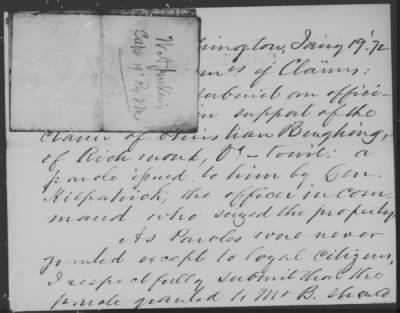 hington, Jany 19 '72
of Claims:
submit an offi-
in support of the
claim of Christian
of Richmond, Va - towit: a
parole issued to him by Gen.
Kilpatrick, the officer in com-
mand who seized the property.
As Paroles were never
granted except to loyal citizens,
I respectfully submit that the
parole granted to Mr B. should